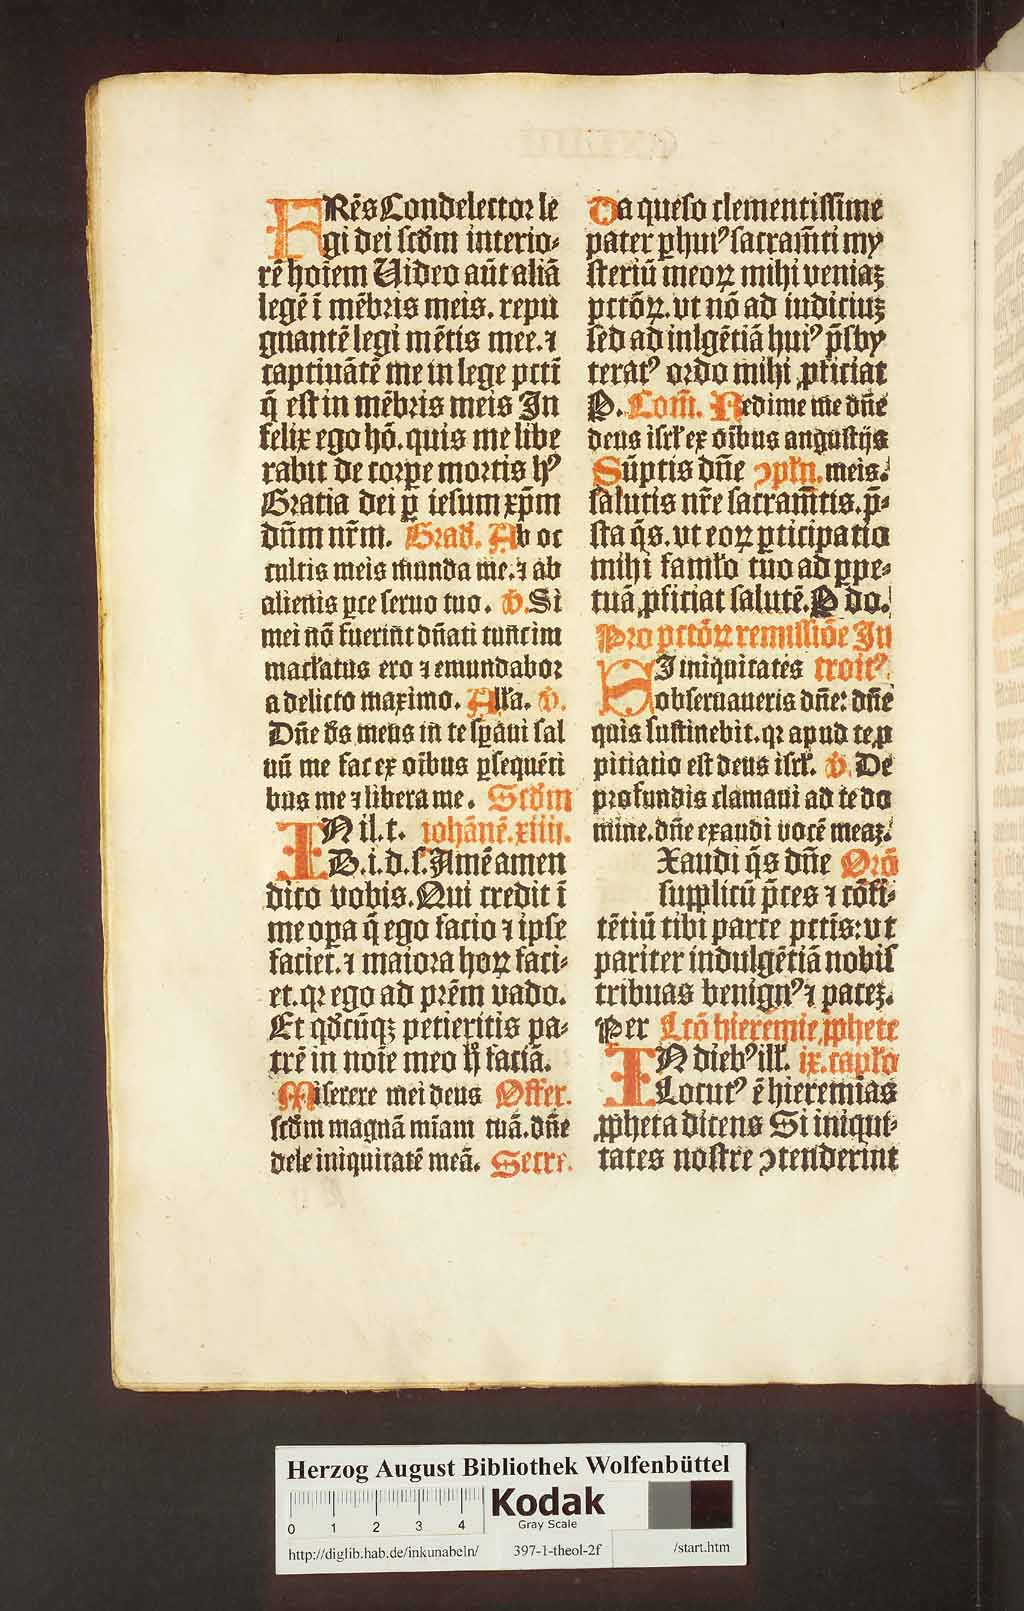 FRēs Condelector le
gi dei scdm interio-
rē hoiem Video aūt aliā
legē ī mēbris meis. repu
gnantē legi mētis mee. ⁊
captiuātē me in lege pctī
q̄ est in mēbris meis In
felix ego hō. quis me libe
rabit de corꝑe mortis hꝰ
Gratia dei ꝑ iesum xp̄m
dn̄m nr̄m. Grad̄. Ab oc
cultis meis munda me. ⁊ ab
alienis ꝑce seruo tuo. ꝟ. Si
mei nō fuerint dn̄ati tunc im
maclatus ero ⁊ emundabor
a delicto maximo. Alla. ꝟ.
Dn̄e ds meus in te sꝑaui sal
uū me fac ex oībus ꝑsequēti
bus me ⁊ libera me. Scdm
IN il. t. iohānē. xiiii.
D. i. d. s. Amē amen
dico vobis. Qui credit ī
me oꝑa q̄ ego facio ⁊ ipse
faciet. ⁊ maiora hoꝝ faci-
et. qꝛ ego ad prēm vado.
Et qdcūqꝫ petieritis pa-
trē in noīe meo h̄ faciā.
Miserere mei deus Offer.
scdm magnā mīam tuā. dn̄e
dele iniquitatē meā. Secre.
Da queso clementissime
pater ꝑ huiꝰ sacramti my
steriū meoꝝ mihi veniaꝫ
pctōꝝ. vt nō ad iudiciuꝫ
sed ad inlgētiā huiꝰ p̄sby
teratꝰ ordo mihi ꝓficiat
P. Com̄. Redime me dn̄e
deus isrl ex oībus angustijs
Sūptis dn̄e ↄpln. meis.
salutis nr̄e sacramtis. p̄-
sta q̄s. vt eoꝝ ꝑticipatio
mihi famlo tuo ad ꝑpe-
tuā ꝓficiat salutē. P do.
Pro pctōꝝ remissiōe In
SI iniquitates troitꝰ
obseruaueris dn̄e: dn̄e
quis sustinebit. qꝛ apud te ꝓ
piciatio est deus isrl. ꝟ. De
profundis clamaui ad te do
mine. dn̄e exaudi vocē meaꝫ.
Xaudi q̄s dn̄e Orō
supplicū p̄ces ⁊ cōfi-
tētiū tibi parce pctīs: vt
pariter indulgētiā nobis
tribuas benignꝰ ⁊ paceꝫ.
Per Lcō hieremie ꝓphete
IN diebꝰ ill. ix. caplo
Locutꝰ ē hieremias
ꝓpheta dicens Si iniqui-
tates nostre ↄtenderint
Herzog August Bibliothek Wolfenbüttel
0 1 2 3 4
Kodak
Gray Scale
http://diglib.hab.de/inkunabeln/ 397-1-theol-2f /start.htm